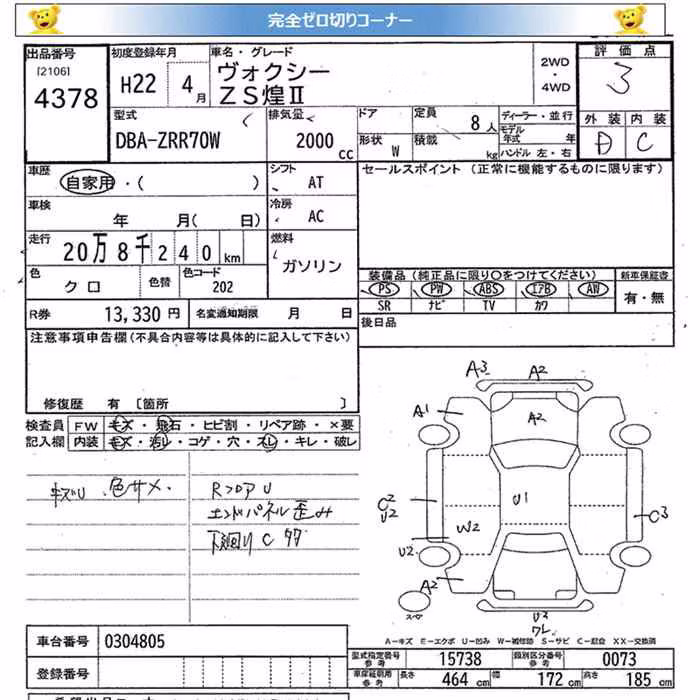 完全ゼロ切りコーナー
出品番号 初度登録年月 車名・グレード 評価点
[2106] 4378 H22 4月 ヴォクシー 2WD・4WD 3
ZS煌Ⅱ
型式 排気量 ドア 定員 ディーラー・並行 外装 内装
DBA-ZRR70W 2000cc 8人 モデル年式 年 D C
形状 W 積載 kg ハンドル 左・右
車歴 シフト セールスポイント (正常に機能するものに限ります)
自家用・( ) AT
車検 冷房
年 月( 日) AC
走行 燃料
20万8千240km ガソリン
色 色替 色コード 装備品 (純正品に限り○をつけてください) 新車保証書
クロ 202 PS PW ABS エアB AW 有・無
SR ナビ TV カワ
R券 13,330円 名変通知期限 月 日 後日品
注意事項申告欄 (不具合内容等は具体的に記入して下さい)
修復歴 有 [箇所 ]
検査員 FW キズ・飛石・ヒビ割・リペア跡・×要
記入欄 内装 キズ・汚レ・コゲ・穴・スレ・キレ・破レ
キズU 色サメ. RフロアU
エンドパネル歪み
下廻りC
A3 A2
A1 A2
C2 U2 U1 C3
W2
U2
A2
スペア U2
ワレ
A-キズ E-エクボ U-凹み W-補修跡 S-サビ C-腐食 XX-交換済
車台番号 0304805
型式指定番号 参考 15738 類別区分番号 参考 0073
登録番号 参考 長さ 464cm 幅 172cm 高さ 185cm